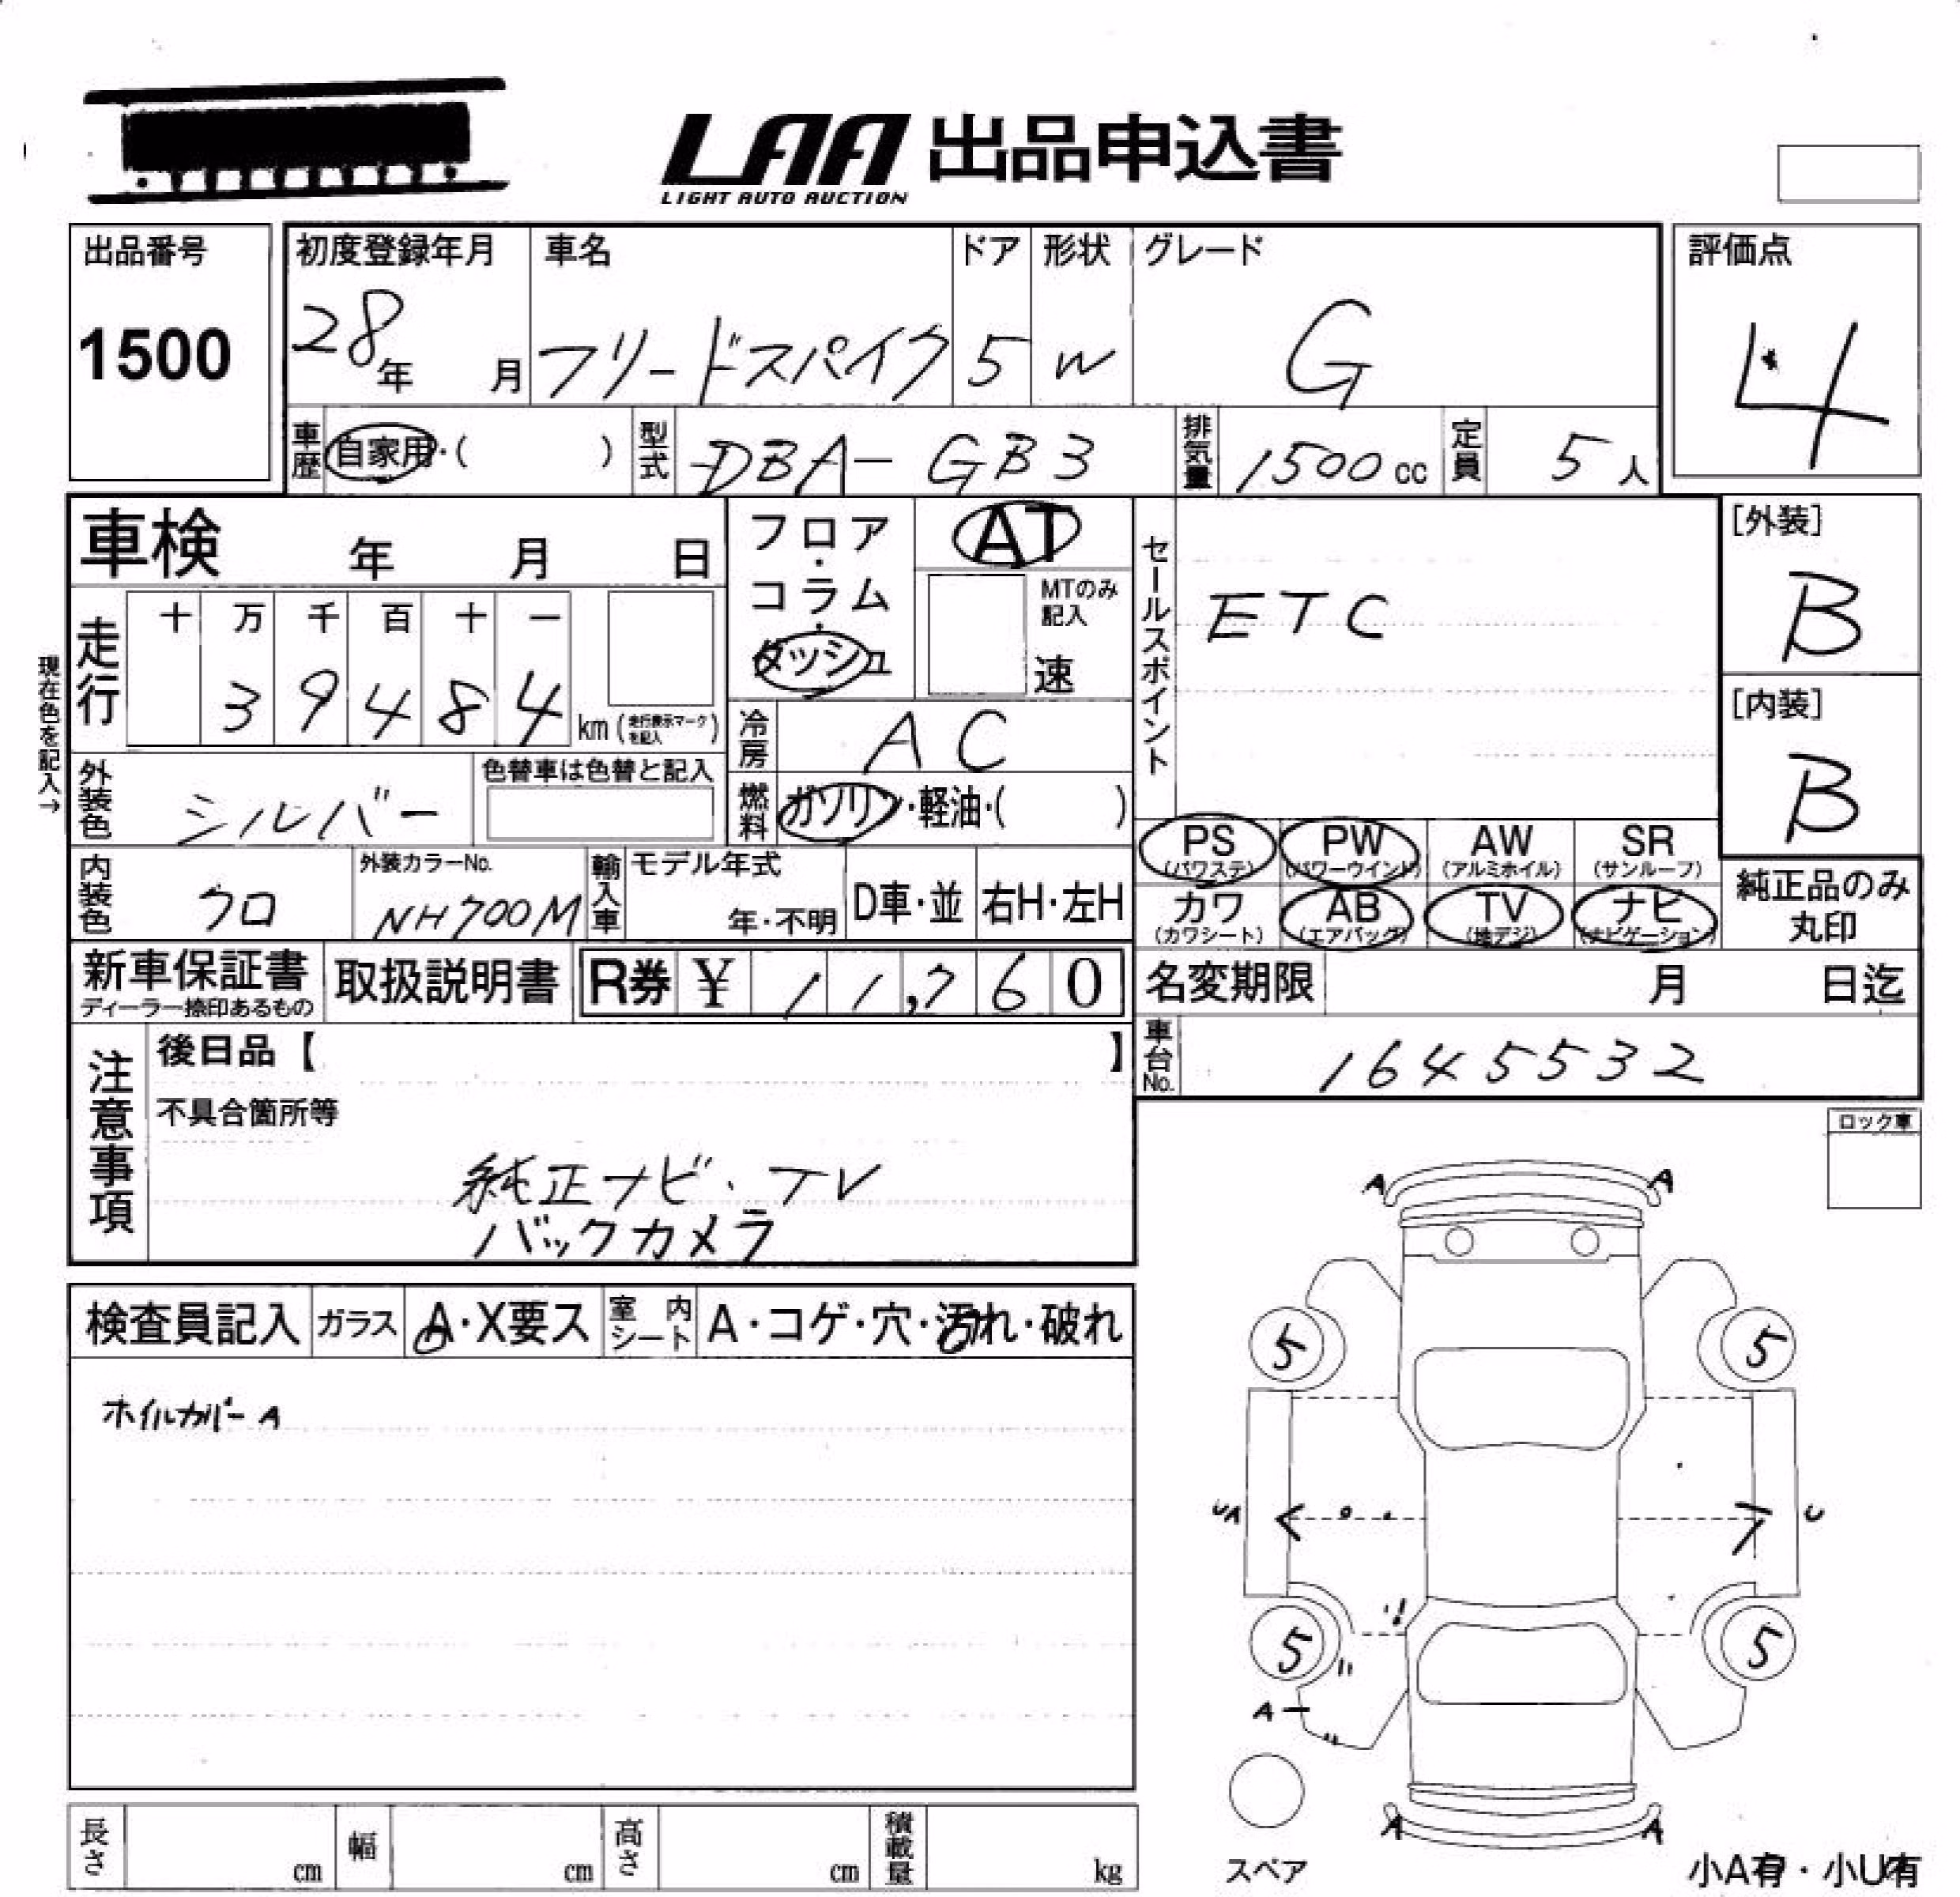 LAA 出品申込書
LIGHT AUTO AUCTION
出品番号
1500
初度登録年月
28年 月
車名
フリードスパイク
ドア
5
形状
W
グレード
G
評価点
4
車歴 自家用・( )
型式 DBA-GB3
排気量 1500cc
定員 5人
車検 年 月 日
フロア・コラム・ダッシュ
AT
MTのみ記入
速
セールスポイント
ETC
[外装]
B
[内装]
B
現在色を記入→
走行
十 万 千 百 十 一
3 9 4 8 4 km (走行表示マークを記入)
冷房 AC
外装色 シルバー
色替車は色替と記入
燃料 ガソリン・軽油・( )
PS (パワステ)
PW (パワーウインド)
AW (アルミホイル)
SR (サンルーフ)
カワ (カワシート)
AB (エアバッグ)
TV (地デジ)
ナビ (ナビゲーション)
純正品のみ
丸印
内装色 クロ
外装カラーNo.
NH700M
輸入車
モデル年式
年・不明
D車・並
右H・左H
新車保証書
ディーラー捺印あるもの
取扱説明書
R券 ¥ 11,760
名変期限 月 日迄
車台No. 1645532
注意事項
後日品【 】
不具合箇所等
純正ナビ・TV
バックカメラ
ロック車
検査員記入
ガラス A・X要ス
室内シート A・コゲ・穴・汚れ・破れ
ホイルカバーA
A A
5 5
UA U
5 5
A
A A
スペア
小A有・小U有
長さ cm
幅 cm
高さ cm
積載量 kg